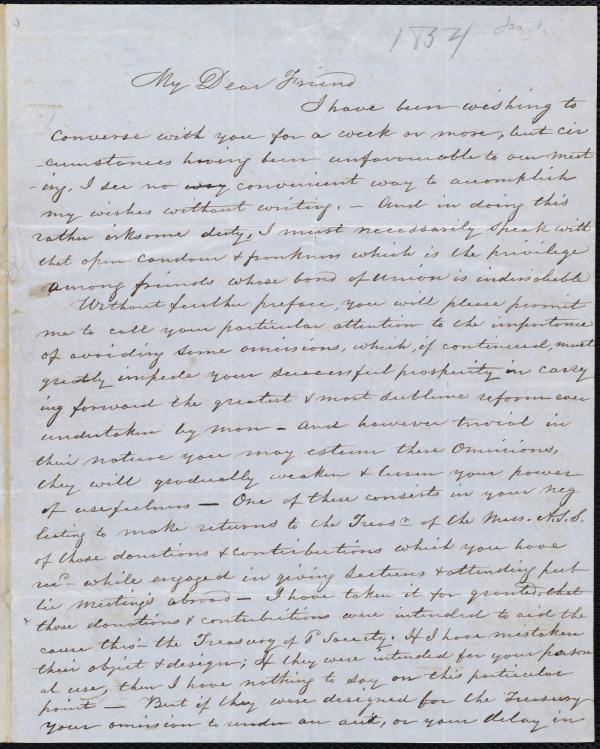 1834 Jan. 1
My Dear Friend
I have been wishing to
converse with you for a week or more, but cir
-cumstances having been unfavourable to our meet
-ing, I see no way convenient way to accomplish
my wishes without writing. – And in doing this
rather irksome duty, I must necessarily speak with
that open candour & frankness which is the privilege
among friends whose bond of union is indissoluble
Without further preface, you will please permit
me to call your particular attention to the importance
of avoiding some omissions, which, if continued, must
greatly impede your successful prosperity in carry
ing forward the greatest & most sublime reform ever
undertaken by man – And however trivial in
their nature you may esteem these omissions,
they will gradually weaken & lessen your power
of usefulness – One of these consists in your neg
lecting to make returns to the Treasr of the Mass. A.S.S.
of those donations & contributions which you have
recd while engaged in giving lectures & attending pub
lic meetings abroad – I have taken it for granted, that
those donations & contributions were intended to aid the
cause thro' the Treasury of sd Society. If I have mistaken
their object & design; If they were intended for your person
al use, then I have nothing to say on this particular
point – But if they were designed for the Treasury
your omission to render an acct, or your delay in